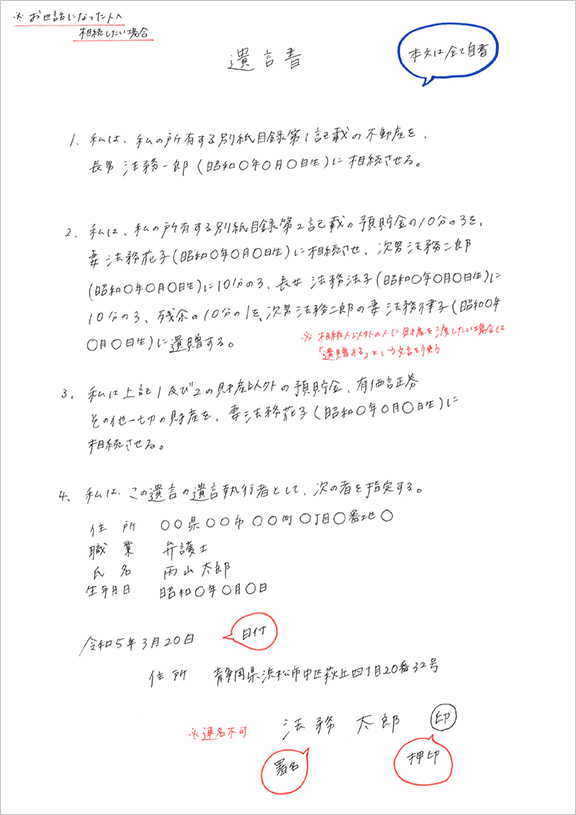 ※お世話になった人へ
相続したい場合
遺言書
本文は全て自書
1. 私は、私の所有する別紙目録第1記載の不動産を、
長男 法務一郎(昭和〇年〇月〇日生)に相続させる。
2. 私は、私の所有する別紙目録第2記載の預貯金の10分の3を、
妻 法務花子(昭和〇年〇月〇日生)に相続させ、次男法務二郎
(昭和〇年〇月〇日生)に10分の3、長女 法務法子(昭和〇年〇月〇日生)に
10分の3、残余の10分の1を、次男法務二郎の妻 法務律子(昭和〇年
〇月〇日生)に遺贈する。
※相続人以外の人に財産を渡したい場合は
「遺贈する」という文言を使う
3. 私は上記1及び2の財産以外の預貯金、有価証券
その他一切の財産を、妻法務花子(昭和〇年〇月〇日生)に
相続させる。
4. 私は、この遺言の遺言執行者として、次の者を指定する。
住所 〇〇県〇〇市〇〇町〇丁目〇番地〇
職業 弁護士
氏名 雨山太郎
生年月日 昭和〇年〇月〇日
令和5年3月20日
日付
住所 静岡県浜松市中区萩丘四丁目20番32号
※連名不可
法務 太郎 印
署名
押印